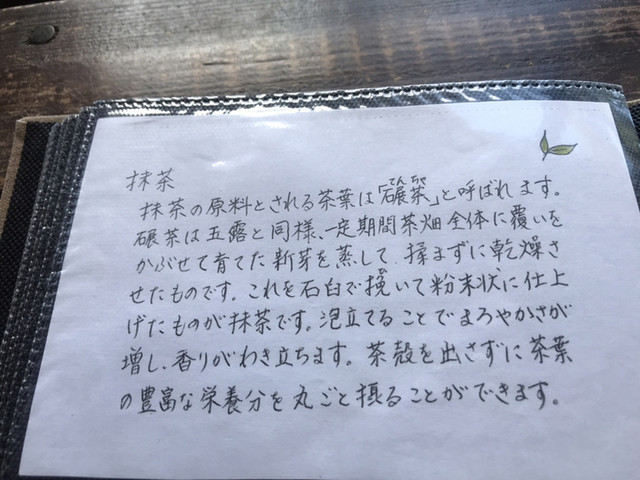 抹茶
抹茶の原料とされる茶葉は「碾茶」と呼ばれます。
碾茶は玉露と同様、一定期間茶畑全体に覆いを
かぶせて育てた新芽を蒸して、揉まずに乾燥さ
せたものです。これを石臼で挽いて粉末状に仕上
げたものが抹茶です。泡立てることでまろやかさが
増し、香りがわき立ちます。茶殻を出さずに茶葉
の豊富な栄養分を丸ごと摂ることができます。